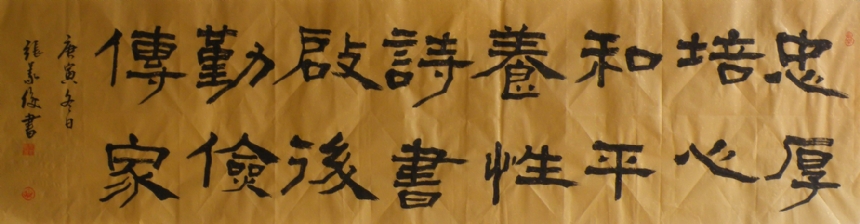 忠厚
培心
和平
養性
詩書
啟後
勤儉
傳家
庚寅冬日
張書